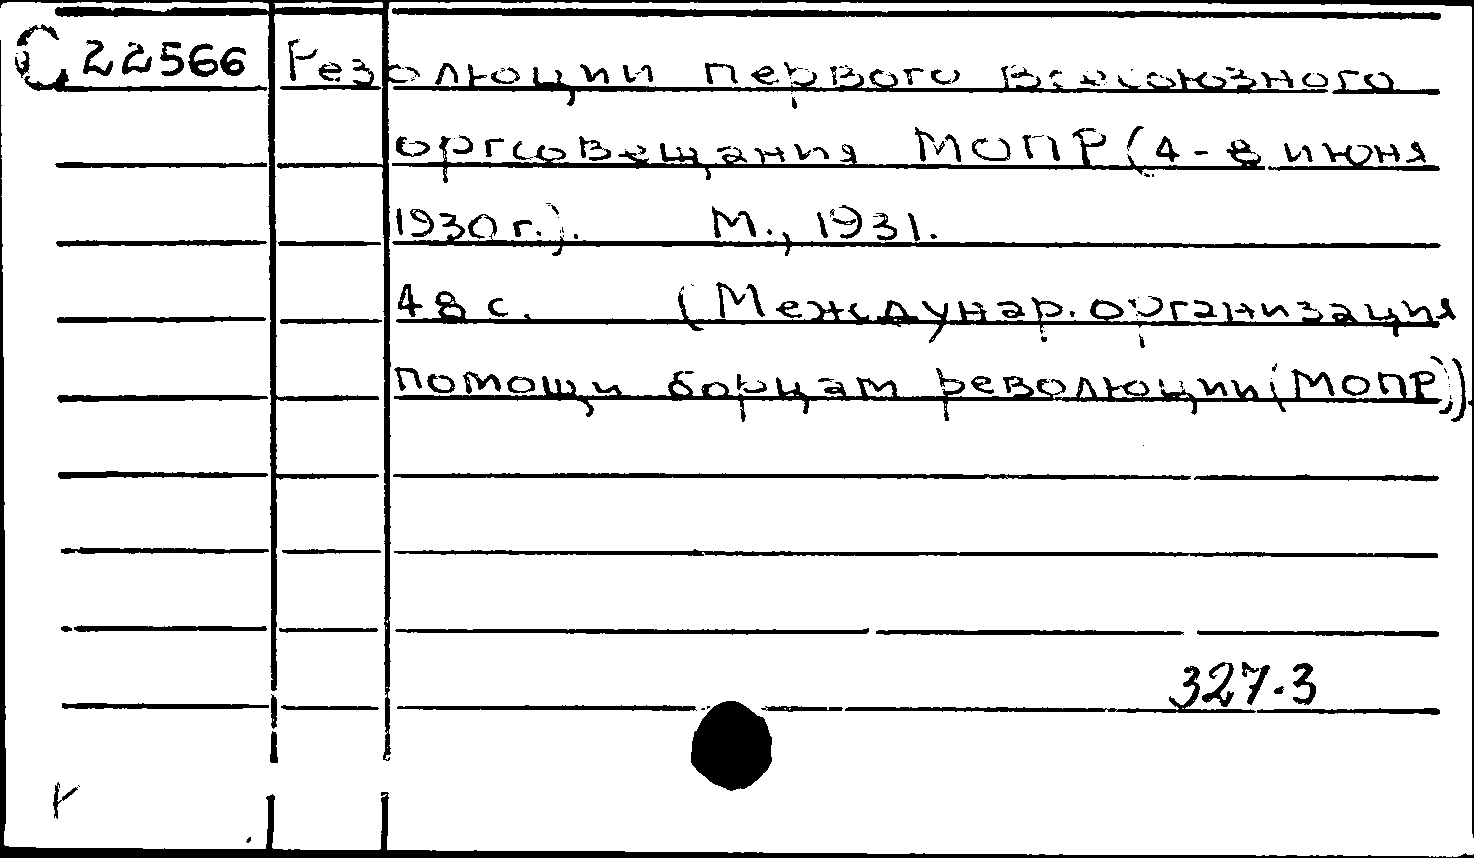 С 22566 Резолюции первого Всесоюзного
оргсовещания МОПР (4-8 июня
1930 г.). М., 1931.
48 с. (Междунар. организация
помощи борцам революции (МОПР)).
327.3